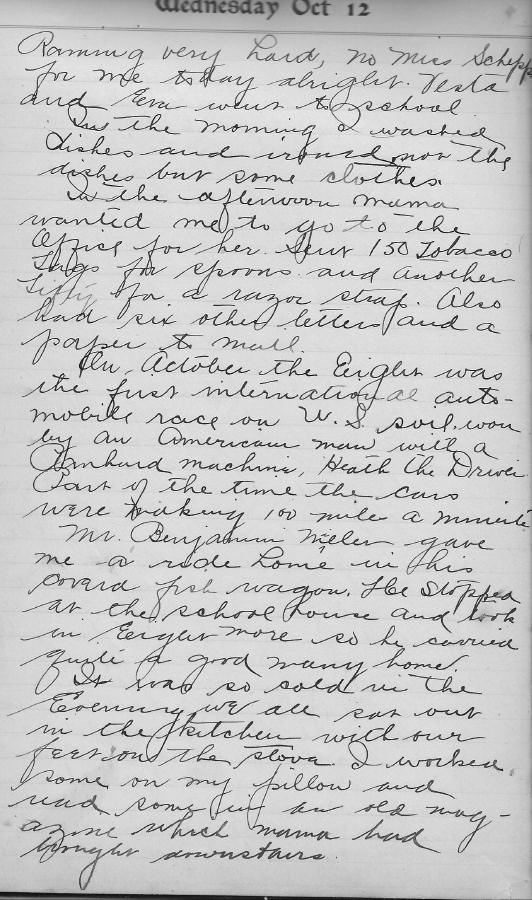 Wednesday Oct 12
Raining very hard, no Miss Schepp
for me today alright. Vesta
and Eva went to school.
In the morning I washed
dishes and ironed, not the
dishes but some clothes.
In the afternoon mama
wanted me to go to the
Office for her. Sent 150 Tobacco
Tags for spoons and another
Fifty for a razor strap. Also
had six other letters and a
paper to mail.
On, October the Eight was
the first international auto-
mobile race on U.S. soil. won
by an American man with a
Panhard machine, Heath the Driver
Part of the time the cars
were making 100 mile a minute
Mr. Benjamin Miler gave
me a ride home in his
coverd fish wagon. He Stopped
at the school house and took
in Eeight more so he carried
quite a good many home.
It was so cold in the
Evening we all sat out
in the kitchen with our
feet on the stove I worked
some on my pillow and
read some in an old mag-
azine which mama had
brought downstairs.